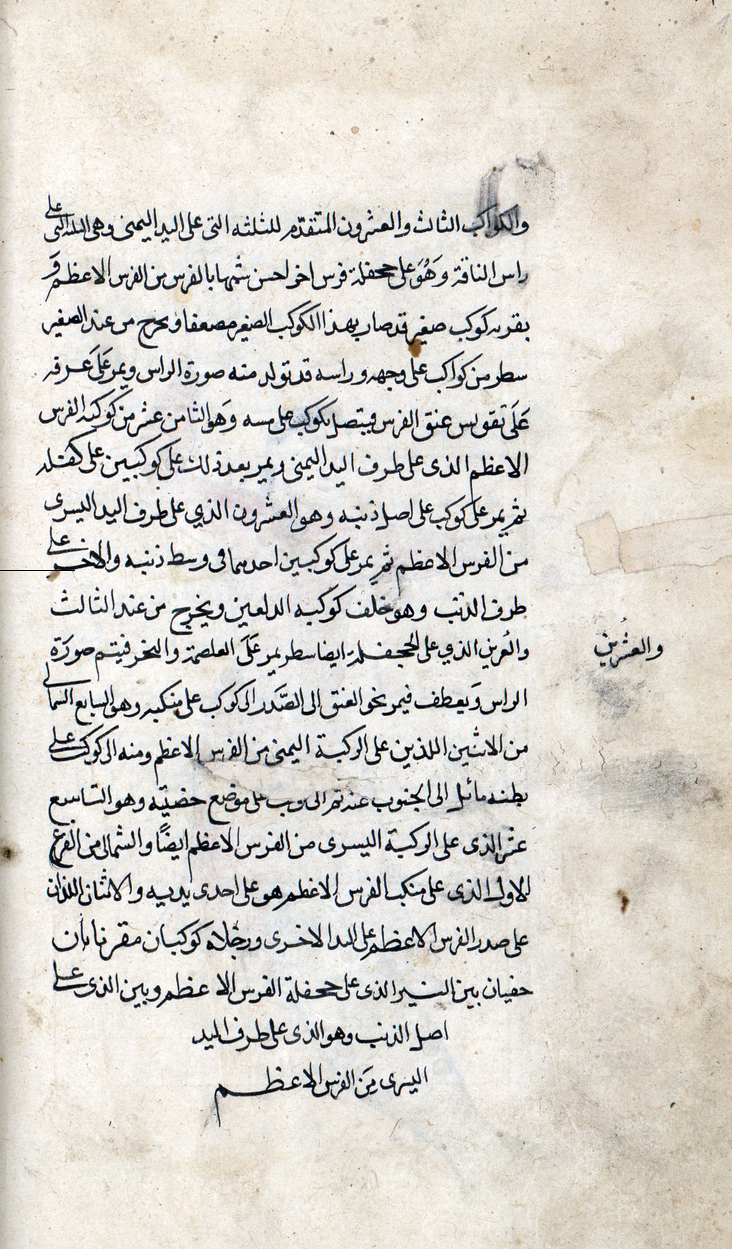 والكواكب الثالث والعشرون المتقدم للثلثه التى على اليد اليمنى وهى الثلثة التى على
راس الناقة وهو على جحفلة فرس اخر احسن شبها بالفرس من الفرس الاعظم و
بقربه كوكب صغير قد صار بهذا الكوكب الصغير مضعفا ويخرج من عند الصغير
سطر من كواكب على وجهه وراسه قد تولد منه صورة الراس ويمر على عرفه
على تقويس عنق الفرس فيتصل بكوكب على وهو الثامن عشر من كوكبة الفرس
الاعظم الذى على طرف اليد اليمنى ويمر بعد ذلك على كوكبين على كفله
ثم يمر على كوكب على اصل ذنبه وهو العشرون الذي على طرف اليد اليسرى
من الفرس الاعظم ثم يمر على كوكبين احدهما فى وسط ذنبه والاخر على
طرف الذنب وهو خلف كوكبه الدلفين ويخرج من عند الثالث
والعرين الذي على الجحفلة ايضا سطر يمر على الغلصمة والنحر فيتم صورة
الراس ويعطف فيمر نحو العنق الى الصدر الى كوكب على منكبه وهو السابع الشمالى
من الاثنين اللذين على الركبة اليمنى من الفرس الاعظم ومنه الى كوكب على
بطنه مائل الى الجنوب عند ثم الى كوكب على موضع خصيته وهو التاسع
عشر الذى على الركبة اليسرى من الفرس الاعظم ايضًا والشمالى من الفرغ
الاول الذى على منكب الفرس الاعظم هو على احدى يديه والاثنان اللذان
على صدر الفرس الاعظم على اليد الاخرى ورجلاه كوكبان مقترنان
خفيان بين النير الذى على جحفلة الفرس الاعظم وبين الذى على
اصل الذنب وهو الذى على طرف اليد
اليسرى من الفرس الاعظم
والعشرين